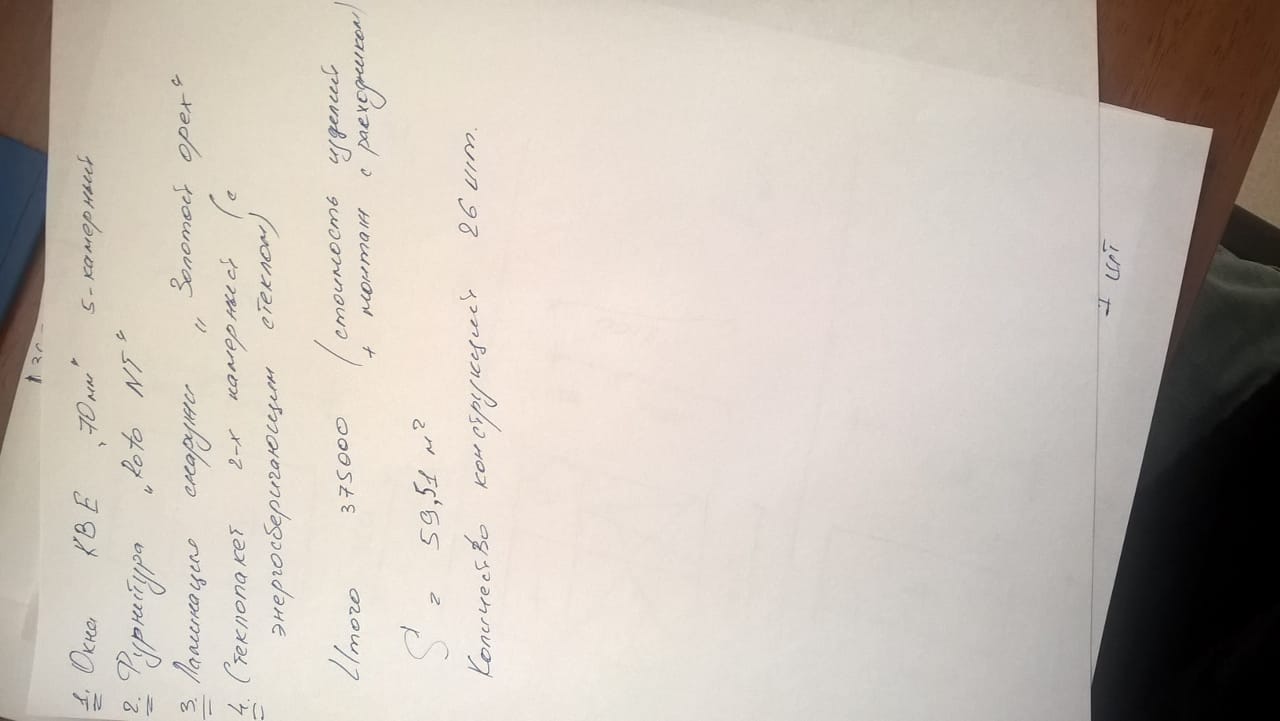 1. Окна KBE „70мм" 5-камерный
2. Фурнитура „Roto NT“
3. Ламинация снаружи „Золотой орех“
4. Стеклопакет 2-х камерный (с
энергосберигающим стеклом)
Итого 375000 (стоимость изделий
+ монтаж с расходником)
S = 59,51 м²
Количество конструкций 26 шт.